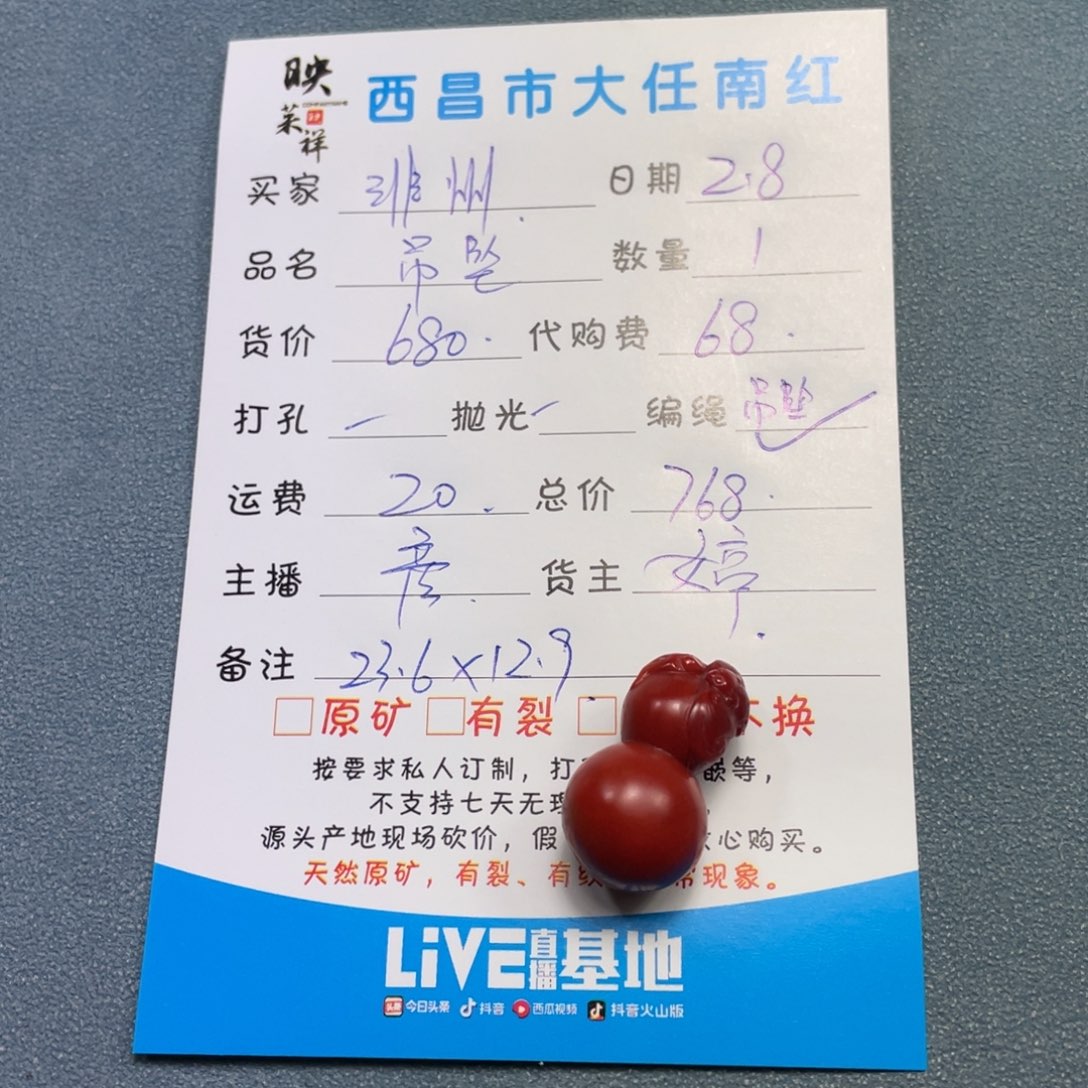 映
莱祥
西昌市大任南红
买家 非州 日期 2.8
品名 吊坠 数量 1
货价 680. 代购费 68.
打孔 抛光 编绳 吊坠
运费 20. 总价 768.
主播 货主 婷
备注 23.6×12.9
原矿 有裂 不换
按要求私人订制，打 嵌等，
不支持七天无理
源头产地现场砍价，假 心购买。
天然原矿，有裂、有纹 现象。
LiVE直播基地
头条 今日头条 抖音 西瓜视频 抖音火山版